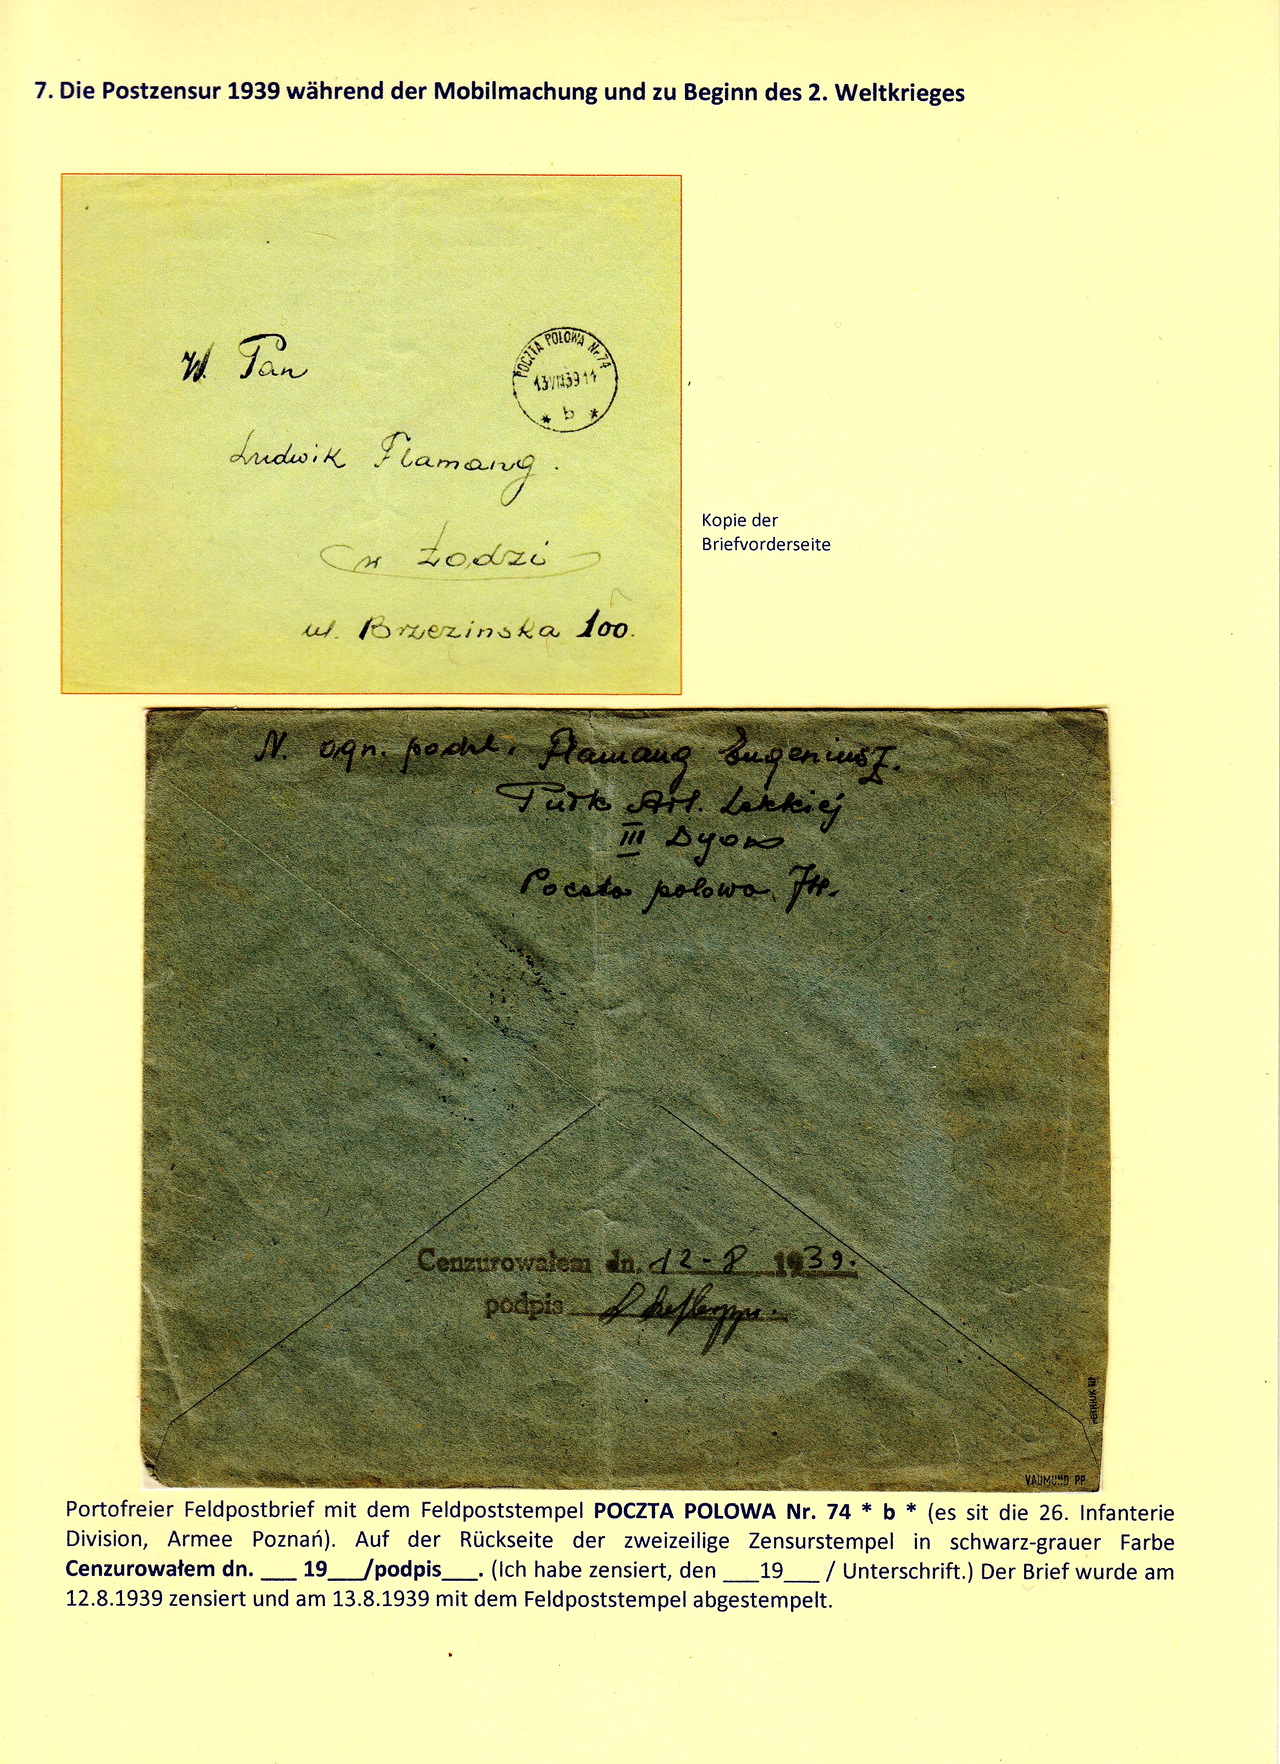 7. Die Postzensur 1939 während der Mobilmachung und zu Beginn des 2. Weltkrieges
W. Pan
POCZTA POLOWA Nr. 74
13 VIII 39 11
* b *
Ludwik Flamang.
w Łodzi
ul. Brzezinska 100.
Kopie der
Briefvorderseite
N. ogn. podch. Flamang Eugeniusz.
Pułk Art. Lekkiej
III Dyon
Poczta polowa 74.
Cenzurowałem dn. 12-8 1939.
podpis
VAUMUND PP
Portofreier Feldpostbrief mit dem Feldpoststempel POCZTA POLOWA Nr. 74 * b * (es sit die 26. Infanterie
Division, Armee Poznań). Auf der Rückseite der zweizeilige Zensurstempel in schwarz-grauer Farbe
Cenzurowałem dn. ___ 19___/podpis___. (Ich habe zensiert, den ___19___ / Unterschrift.) Der Brief wurde am
12.8.1939 zensiert und am 13.8.1939 mit dem Feldpoststempel abgestempelt.